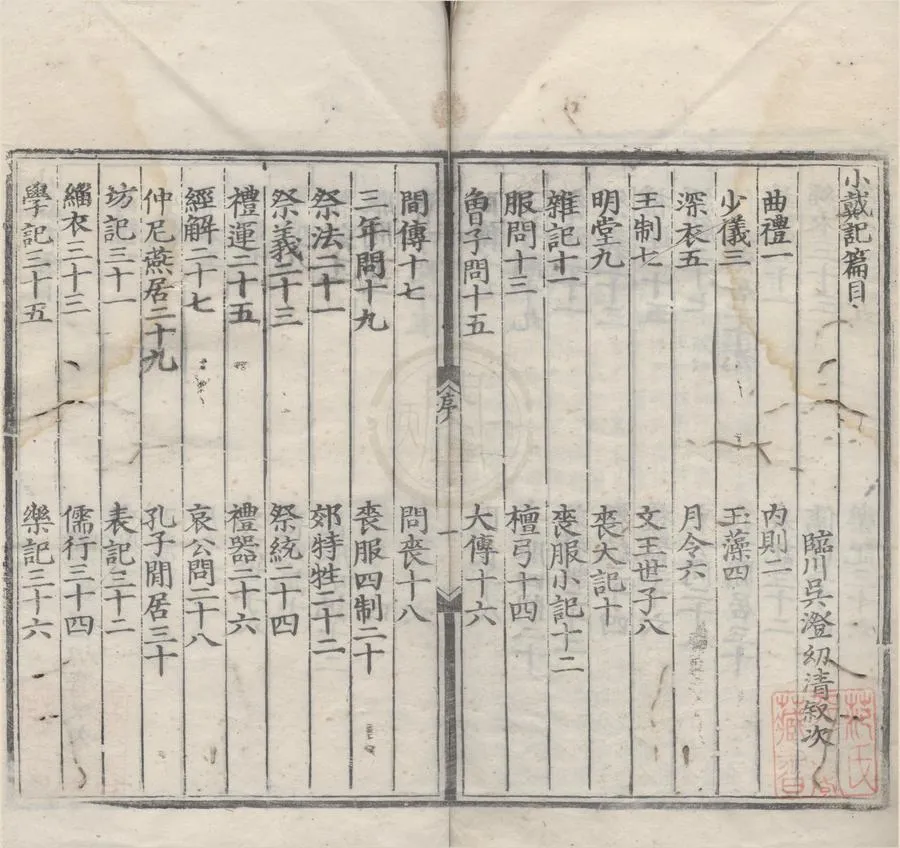 小戴記篇目
臨川吳澄幼清敘次
曲禮一 內則二
少儀三 玉藻四
深衣五 月令六
王制七 文王世子八
明堂九 喪大記十
雜記十一 喪服小記十二
服問十三 檀弓十四
曾子問十五 大傳十六
序 一
間傳十七 問喪十八
三年問十九 喪服四制二十
祭法二十一 郊特牲二十二
祭義二十三 祭統二十四
禮運二十五 禮器二十六
經解二十七 哀公問二十八
仲尼燕居二十九 孔子閒居三十
坊記三十一 表記三十二
緇衣三十三 儒行三十四
學記三十五 樂記三十六